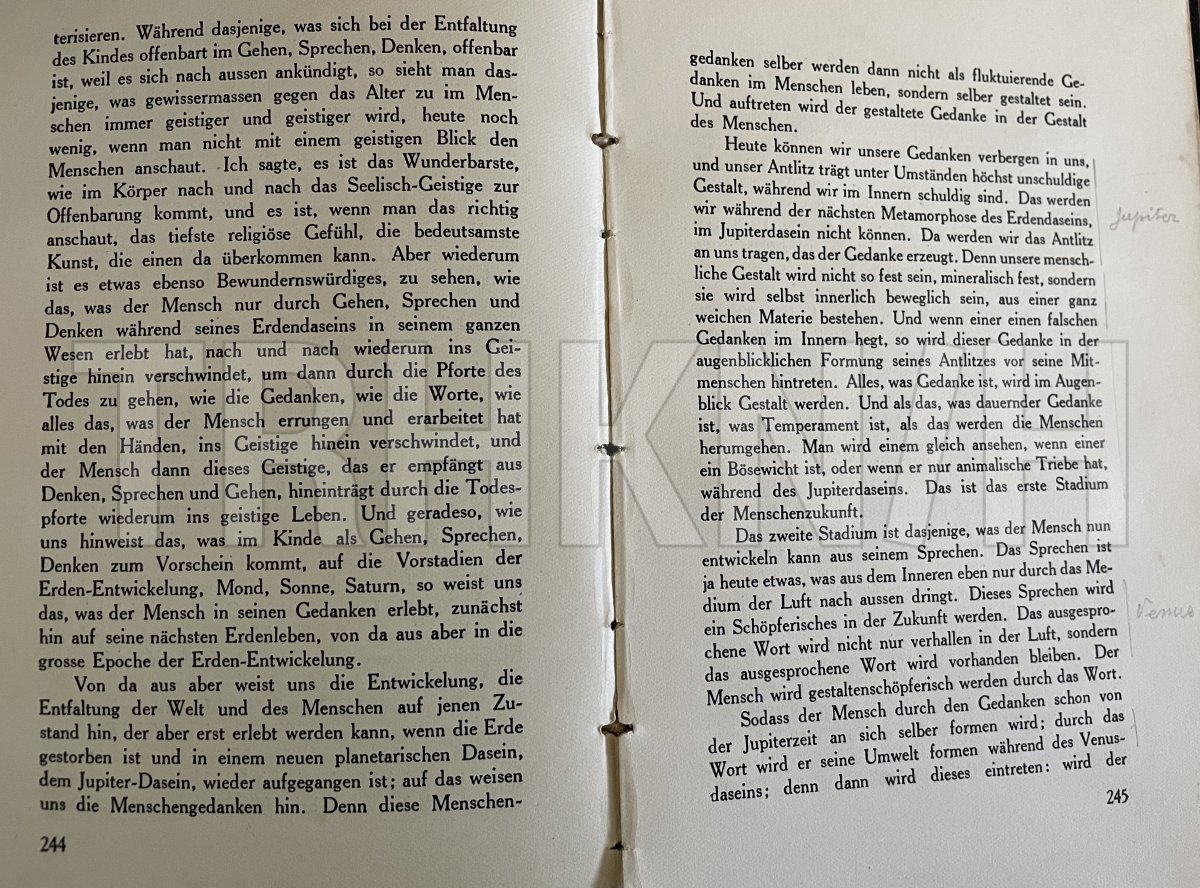 terisieren. Während dasjenige, was sich bei der Entfaltung
des Kindes offenbart im Gehen, Sprechen, Denken, offenbar
ist, weil es sich nach aussen ankündigt, so sieht man das-
jenige, was gewissermassen gegen das Alter zu im Men-
schen immer geistiger und geistiger wird, heute noch
wenig, wenn man nicht mit einem geistigen Blick den
Menschen anschaut. Ich sagte, es ist das Wunderbarste,
wie im Körper nach und nach das Seelisch-Geistige zur
Offenbarung kommt, und es ist, wenn man das richtig
anschaut, das tiefste religiöse Gefühl, die bedeutsamste
Kunst, die einen da überkommen kann. Aber wiederum
ist es etwas ebenso Bewundernswürdiges, zu sehen, wie
das, was der Mensch nur durch Gehen, Sprechen und
Denken während seines Erdendaseins in seinem ganzen
Wesen erlebt hat, nach und nach wiederum ins Gei-
stige hinein verschwindet, um dann durch die Pforte des
Todes zu gehen, wie die Gedanken, wie die Worte, wie
alles das, was der Mensch errungen und erarbeitet hat
mit den Händen, ins Geistige hinein verschwindet, und
der Mensch dann dieses Geistige, das er empfängt aus
Denken, Sprechen und Gehen, hineinträgt durch die Todes-
pforte wiederum ins geistige Leben. Und geradeso, wie
uns hinweist das, was im Kinde als Gehen, Sprechen,
Denken zum Vorschein kommt, auf die Vorstadien der
Erden-Entwickelung, Mond, Sonne, Saturn, so weist uns
das, was der Mensch in seinen Gedanken erlebt, zunächst
hin auf seine nächsten Erdenleben, von da aus aber in die
grosse Epoche der Erden-Entwickelung.
Von da aus aber weist uns die Entwickelung, die
Entfaltung der Welt und des Menschen auf jenen Zu-
stand hin, der aber erst erlebt werden kann, wenn die Erde
gestorben ist und in einem neuen planetarischen Dasein,
dem Jupiter-Dasein, wieder aufgegangen ist; auf das weisen
uns die Menschengedanken hin. Denn diese Menschen-
244
gedanken selber werden dann nicht als fluktuierende Ge-
danken im Menschen leben, sondern selber gestaltet sein.
Und auftreten wird der gestaltete Gedanke in der Gestalt
des Menschen.
Heute können wir unsere Gedanken verbergen in uns,
und unser Antlitz trägt unter Umständen höchst unschuldige
Gestalt, während wir im Innern schuldig sind. Das werden
wir während der nächsten Metamorphose des Erdendaseins,
im Jupiterdasein nicht können. Da werden wir das Antlitz
an uns tragen, das der Gedanke erzeugt. Denn unsere mensch-
liche Gestalt wird nicht so fest sein, mineralisch fest, sondern
sie wird selbst innerlich beweglich sein, aus einer ganz
weichen Materie bestehen. Und wenn einer einen falschen
Gedanken im Innern hegt, so wird dieser Gedanke in der
augenblicklichen Formung seines Antlitzes vor seine Mit-
menschen hintreten. Alles, was Gedanke ist, wird im Augen-
blick Gestalt werden. Und als das, was dauernder Gedanke
ist, was Temperament ist, als das werden die Menschen
herumgehen. Man wird einem gleich ansehen, wenn einer
ein Bösewicht ist, oder wenn er nur animalische Triebe hat,
während des Jupiterdaseins. Das ist das erste Stadium
der Menschenzukunft.
Das zweite Stadium ist dasjenige, was der Mensch nun
entwickeln kann aus seinem Sprechen. Das Sprechen ist
ja heute etwas, was aus dem Inneren eben nur durch das Me-
dium der Luft nach aussen dringt. Dieses Sprechen wird
ein Schöpferisches in der Zukunft werden. Das ausgespro-
chene Wort wird nicht nur verhallen in der Luft, sondern
das ausgesprochene Wort wird vorhanden bleiben. Der
Mensch wird gestaltenschöpferisch werden durch das Wort.
Sodass der Mensch durch den Gedanken schon von
der Jupiterzeit an sich selber formen wird; durch das
Wort wird er seine Umwelt formen während des Venus-
daseins; denn dann wird dieses eintreten: wird der
245
Jupiter
Venus
TRHKMH